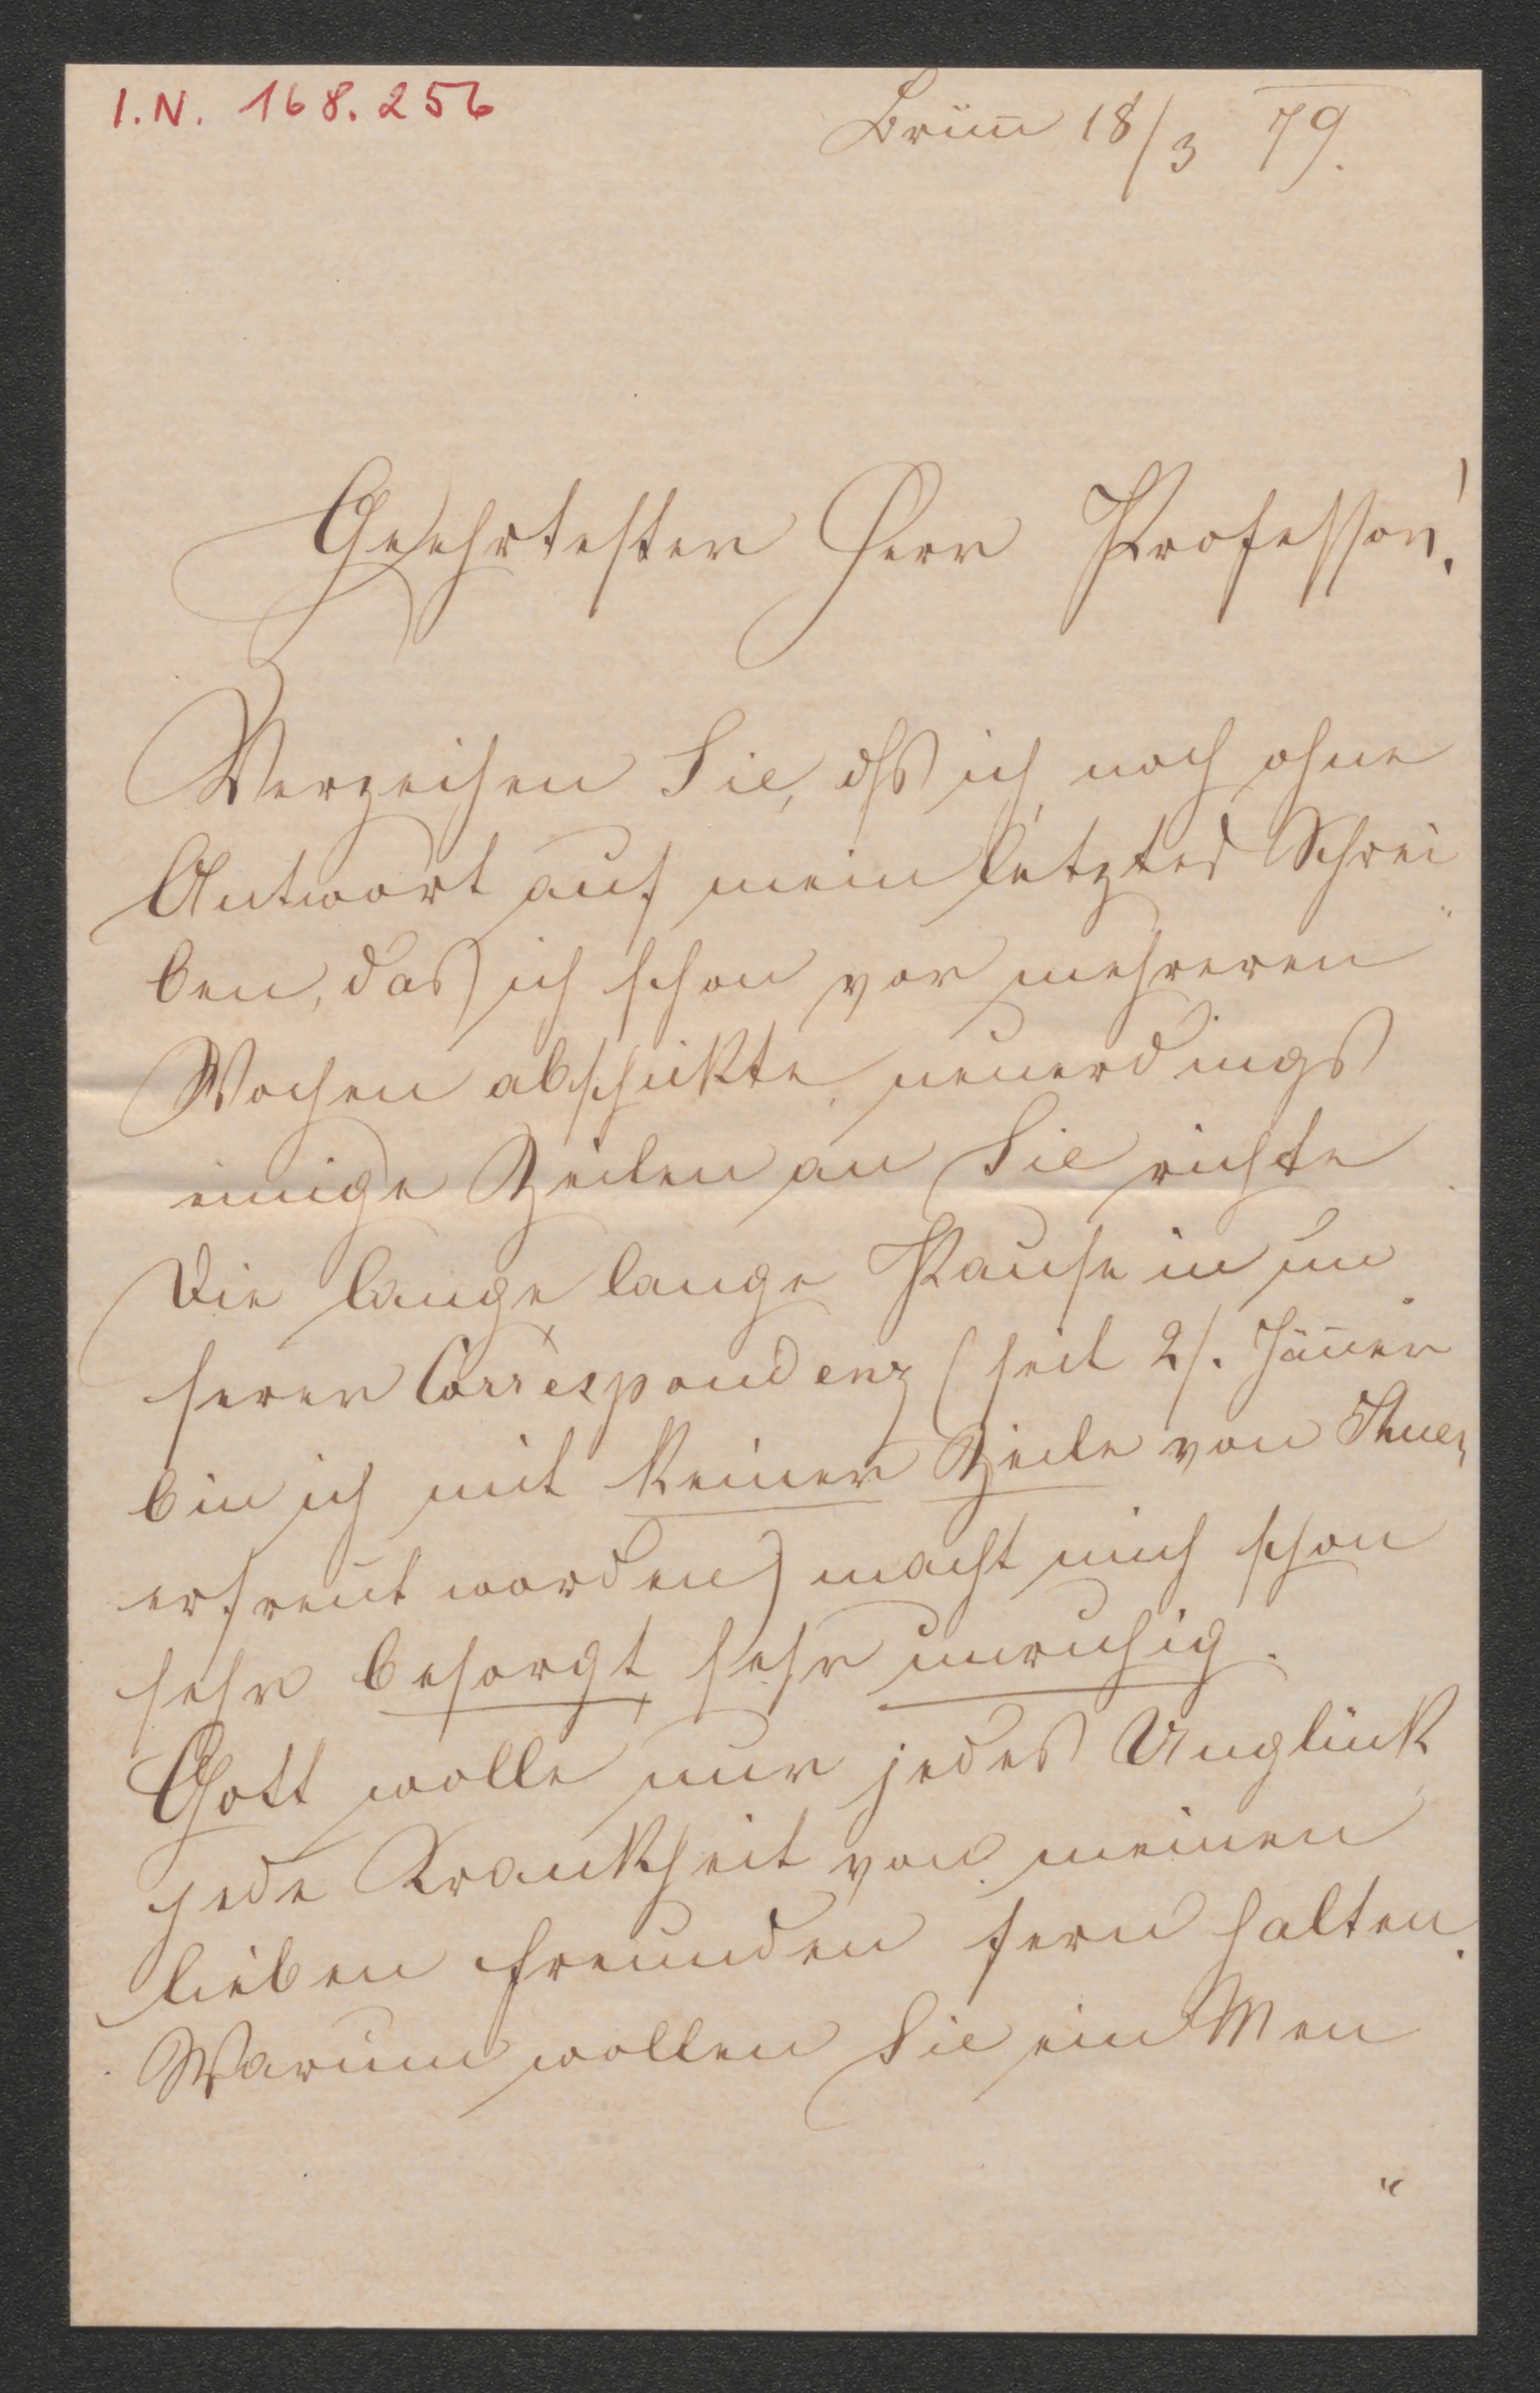 I.N. 168.256
Brün̄ 18/3 79.
Geehrtester Herr Professor!
Verzeihen Sie, dß ich, noch ohne
Antwort auf mein letztes Schrei
ben, das ich schon vor mehreren
Wochen abschikte, neuerdings
einige Zeilen an Sie richte.
Die lange lange Pause in un
serer Correspondenz (seit 2/. Jän̄er
bin ich mit keiner Zeile von Ihnen
erfreut worden) macht mich schon
sehr besorgt, sehr unruhig.
Gott wolle nur jedes Unglück,
jede Krankheit von meinen
lieben Freunden fern halten.
Warum wollen Sie ein Men
"